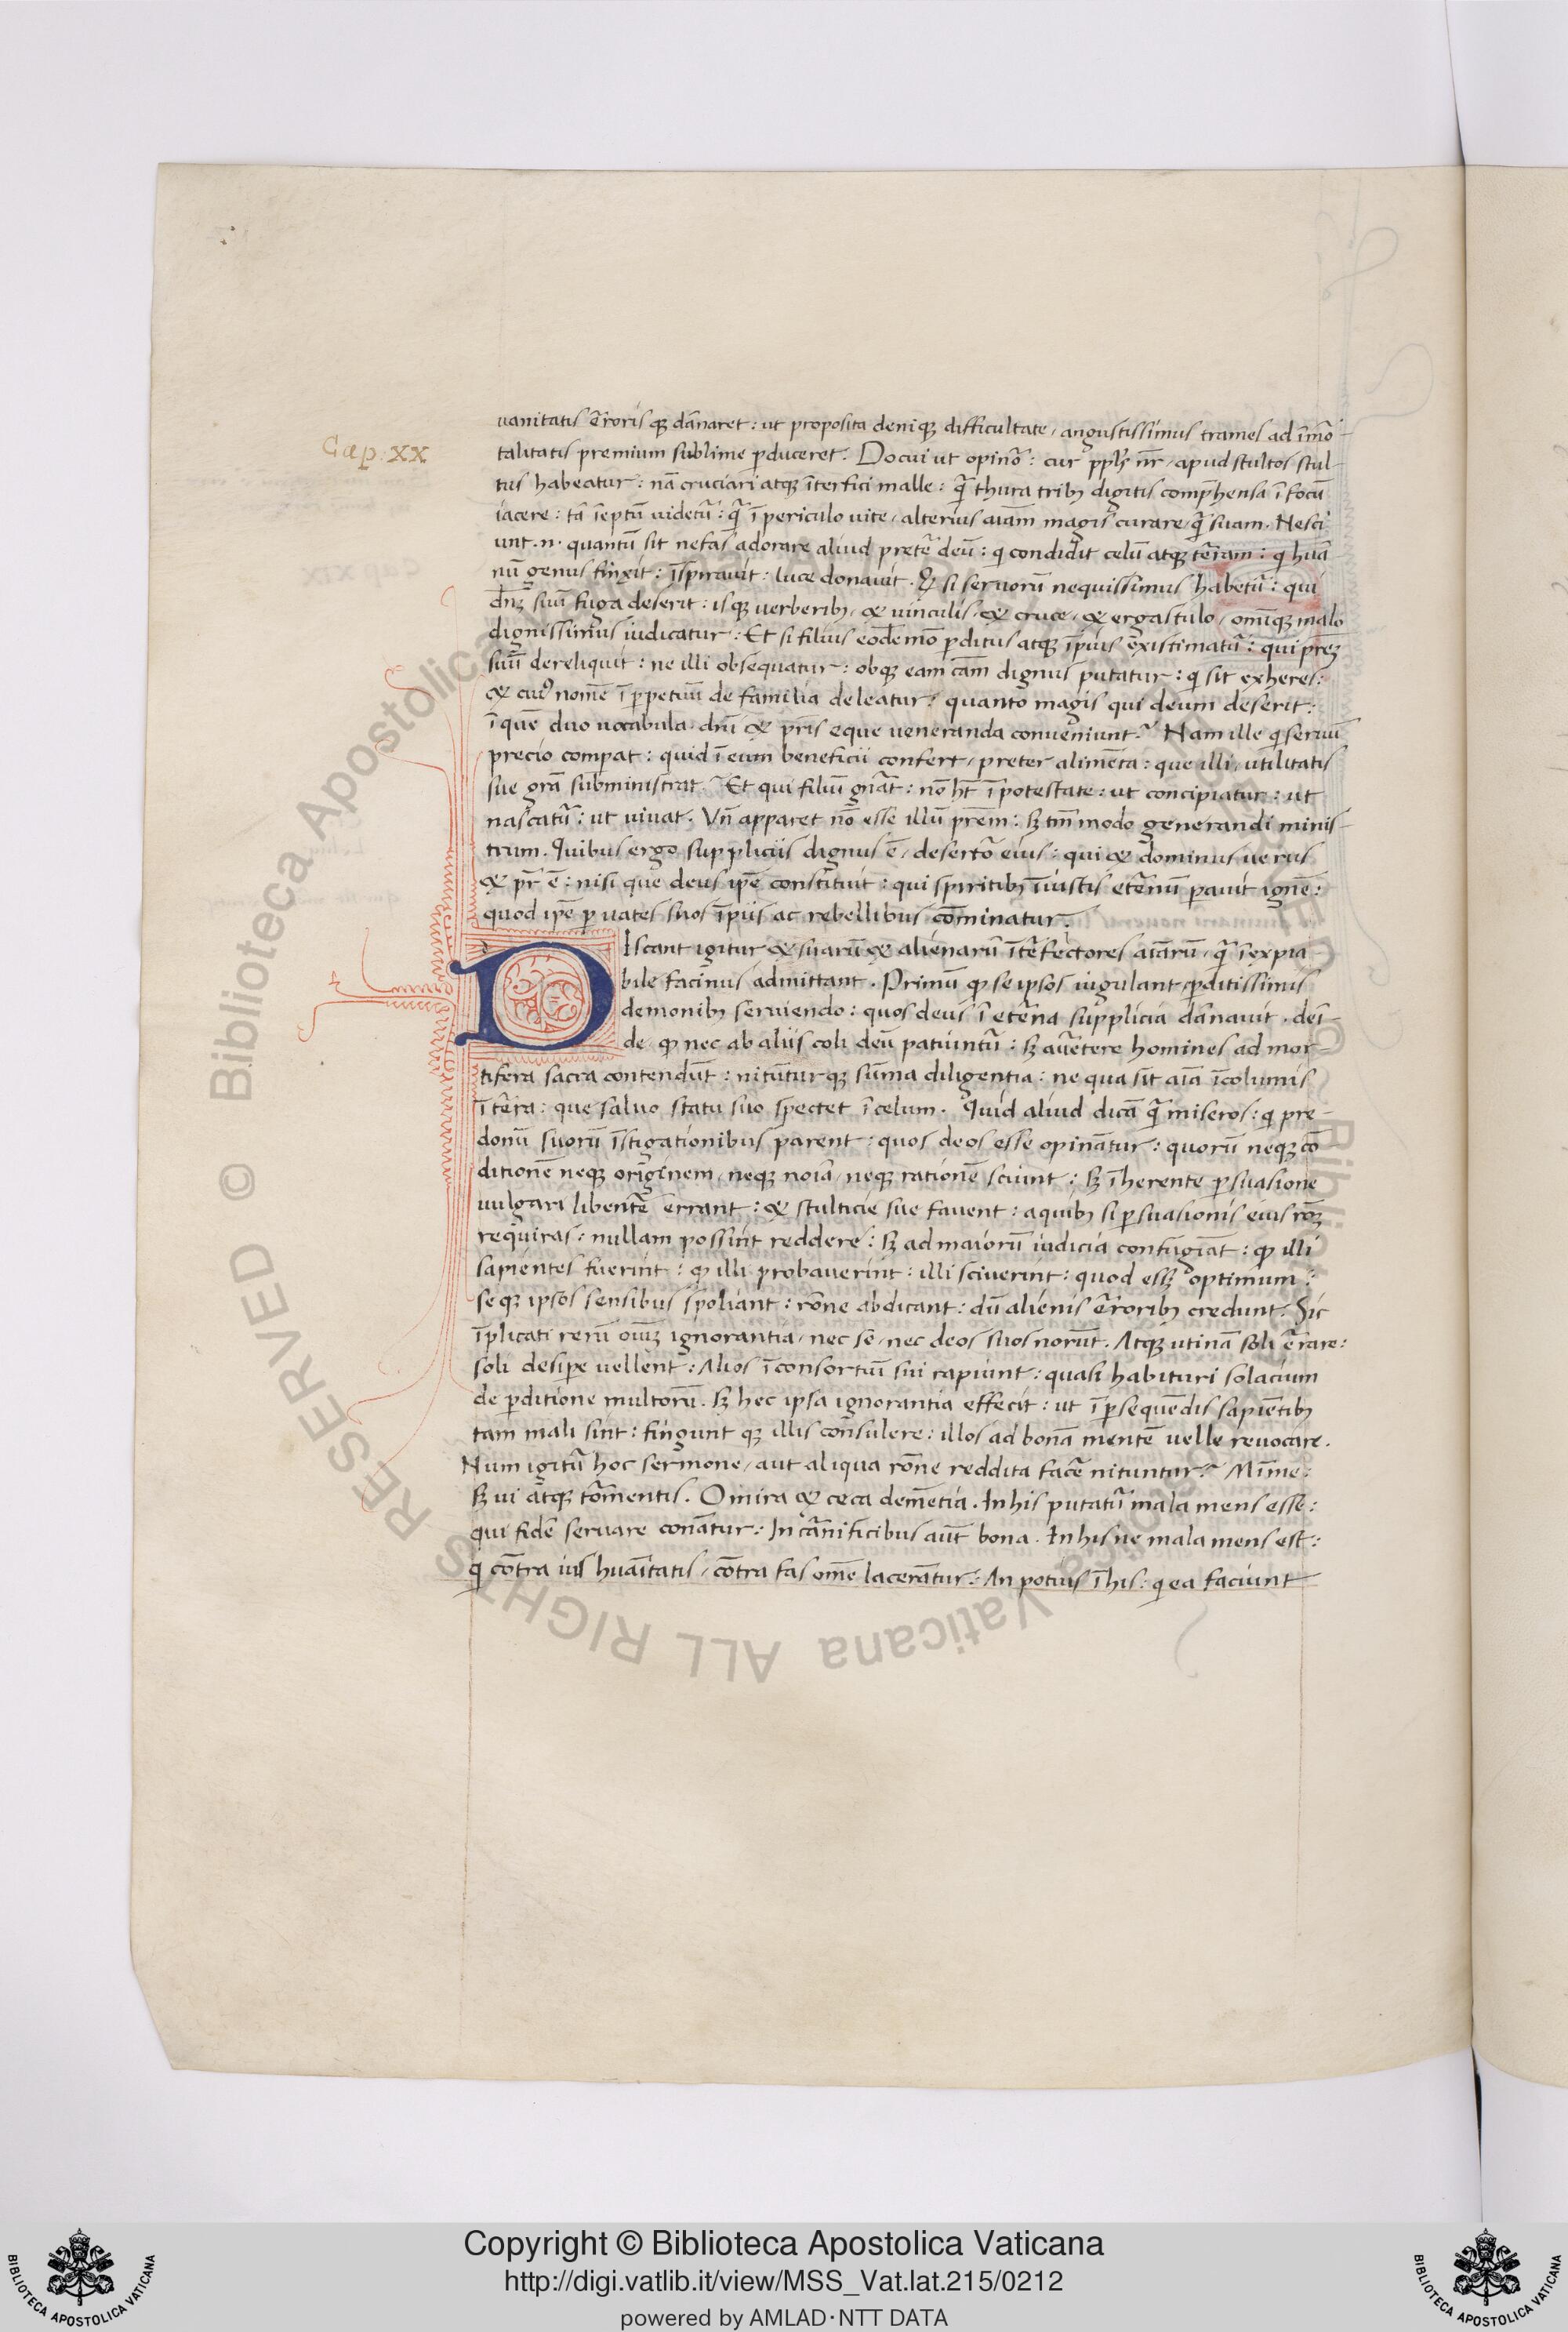 Cap. XX
vanitatis ẽroris qȝ dãnaret : ut proposita deniqȝ difficultate, angustissimus trames ad ĩmõ-
talitatis premium sublime p̱duceret. Docui ut opinõ : cur pplɜ nr̃, apud stultos stul-
tus habeatur : nã cruciari atqȝ ĩterfici malle : q̃ thura tribȝ digitis comp̃hensa ĩ focũ
iacere : tã ĩeptũ videtũ : q̃ ĩ periculo vite, alterius aiãm magis curare, q̃ suam. Nesci
unt .n. quantũ sit nefas adorare aliud pretẽ deũ : q condidit celũ atqȝ tẽram : q huã
nũ genus finxit : ĩspiravit : luce donavit. Q̃ si servorũ nequissimus habetũ : qui
dñȝ suũ fuga deserit : isqȝ verberibȝ, & vinculis, & cruce, & ergastulo, omĩqȝ malo
dignissimus iudicatur : Et si filius eodẽ mõ p̱ditus atqȝ ĩpius existimatũ : qui prẽȝ
suũ dereliquit : ne illi obsequatur : obqȝ eam cãm dignus putatur : q sit exheres :
& cuiꝰ nomẽ ĩ p̱petuũ de familia deleatur : quanto magis qui deum deserit :
ĩ quẽ duo vocabula dñi & pr̃is eque veneranda conveniunt? Nam ille q servũ
precio compat : quid ĩ eum beneficii confert, preter alimẽta : que illi, utilitatis
sue grã subministrat? Et qui filiũ gñat : nõ ht̃ ĩ potestate : ut concipiatur : ut
nascatũ : ut vivat. Vñ apparet nõ esse illũ prẽm : sȝ tm̃ modo generandi minis-
trum. Quibus ergo suppliciis dignus ẽ, desertõ eius : qui & dominus verus
& pr̃ ẽ : nisi que deus ip̃e constituit : qui spiritibȝ ĩiustis etẽnũ p̱avit ignẽ :
quod ip̃e p̱ vates suos ĩpiis ac rebellibus cõminatur.
DIscant igitur & suarũ & alienarũ ĩtẽfectores aiãrũ, q̃ ĩexpia-
bile facinus admittant. Primũ qɜ se ipsos iugulant, p̱ditissimis
demonibȝ serviendo : quos deus ĩ etẽna supplicia dãnavit. deĩ-
de, qɜ nec ab aliis coli deũ patiuntũ : sȝ avẽtere homines ad mor-
tifera sacra contendũt : nitũturqȝ sũma diligentia : ne qua sit aiã ĩcolumis
ĩ tẽra : que salvo statu suo spectet ĩ celum. Quid aliud dicã q̃ miseros : q pre-
donũ suorũ ĩstigationibus parent : quos deos esse opinãtur : quorũ neqȝ cõ
ditionẽ neqȝ originem, neqȝ noiã, neqȝ rationẽ sciunt : sȝ ĩherente p̱suasione
vulgari libentẽ errant : & stulticie sue favent : a quibȝ si p̱suasionis eius rõȝ
requiras : nullam possint reddere : sȝ ad maiorũ iudicia confugiãt : qɜ illi
sapientes fuerint : qɜ illi probaverint : illi sciverint : quod essȝ optimum :
seqȝ ipsos sensibus spoliant : rõne abdicant : dũ alienis ẽroribȝ credunt. Sic
ĩplicati rerũ oiũȝ ignorantia, nec sẽ, nec deos suos norũt. Atqȝ utinã soli ẽrare :
soli desipe vellent : Alios ĩ consortiũ sui rapiunt : quasi habituri solacium
de p̱ditione multorũ. Sȝ hec ipsa ignorantia effecit : ut ĩ p̱sequẽdis sapiẽtibȝ
tam mali sint : fingunt qȝ illis consulere : illos ad bonã mentẽ velle revocare.
Num igitũ hoc sermone, aut aliqua rõne reddita facẽ nituntur? Mĩme :
sȝ vi atqȝ tõmentis. O mira & ceca demẽtia. In his putatũ mala mens esse :
qui fidẽ servare conãtur : In cãnificibus aũt bona. In his ne mala mens est :
q cõtra ius huãitatis, cõtra fas omẽ lacerãtur : An potius ĩ his : q ea faciunt
Copyright © Biblioteca Apostolica Vaticana
http://digi.vatlib.it/view/MSS_Vat.lat.215/0212
powered by AMLAD·NTT DATA